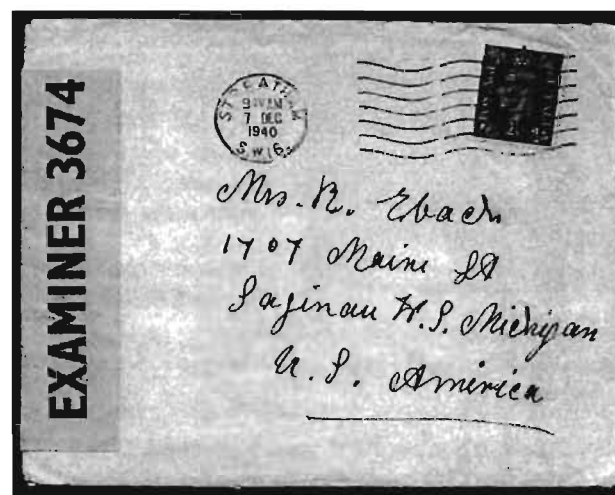 EXAMINER 3674
STREATHAM
7 DEC
1940
S.W.16.
Mrs. R. Ebach
1707 Maine St
Saginau W. S. Michigan
U. S. America